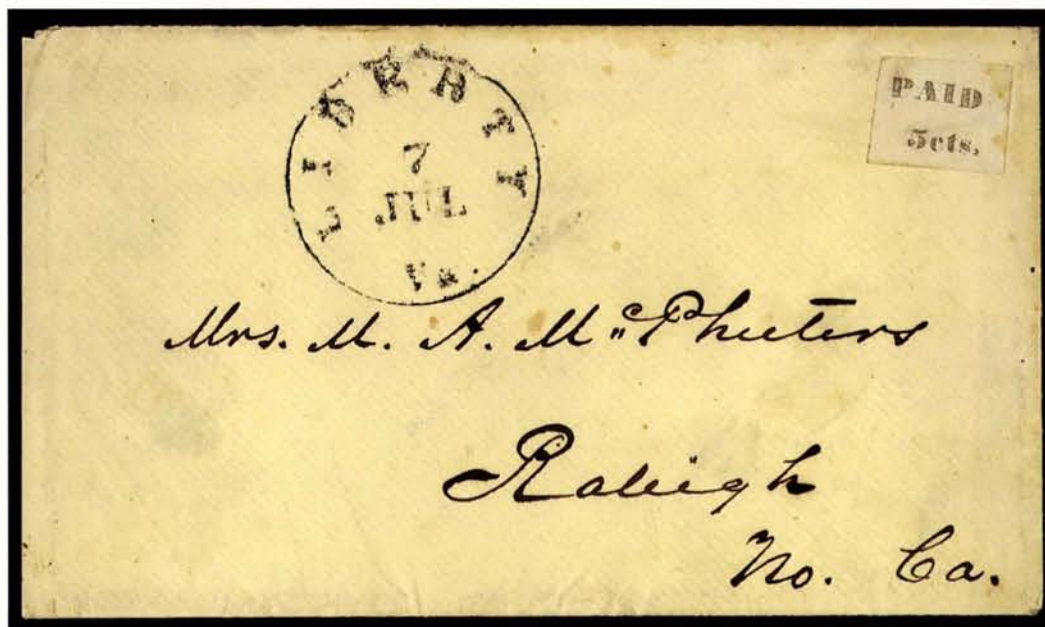 LIBERTY
7
JUL
Va.
PAID
5cts.
Mrs. M. A. Mc"Pheeters
Raleigh
No. Ca.